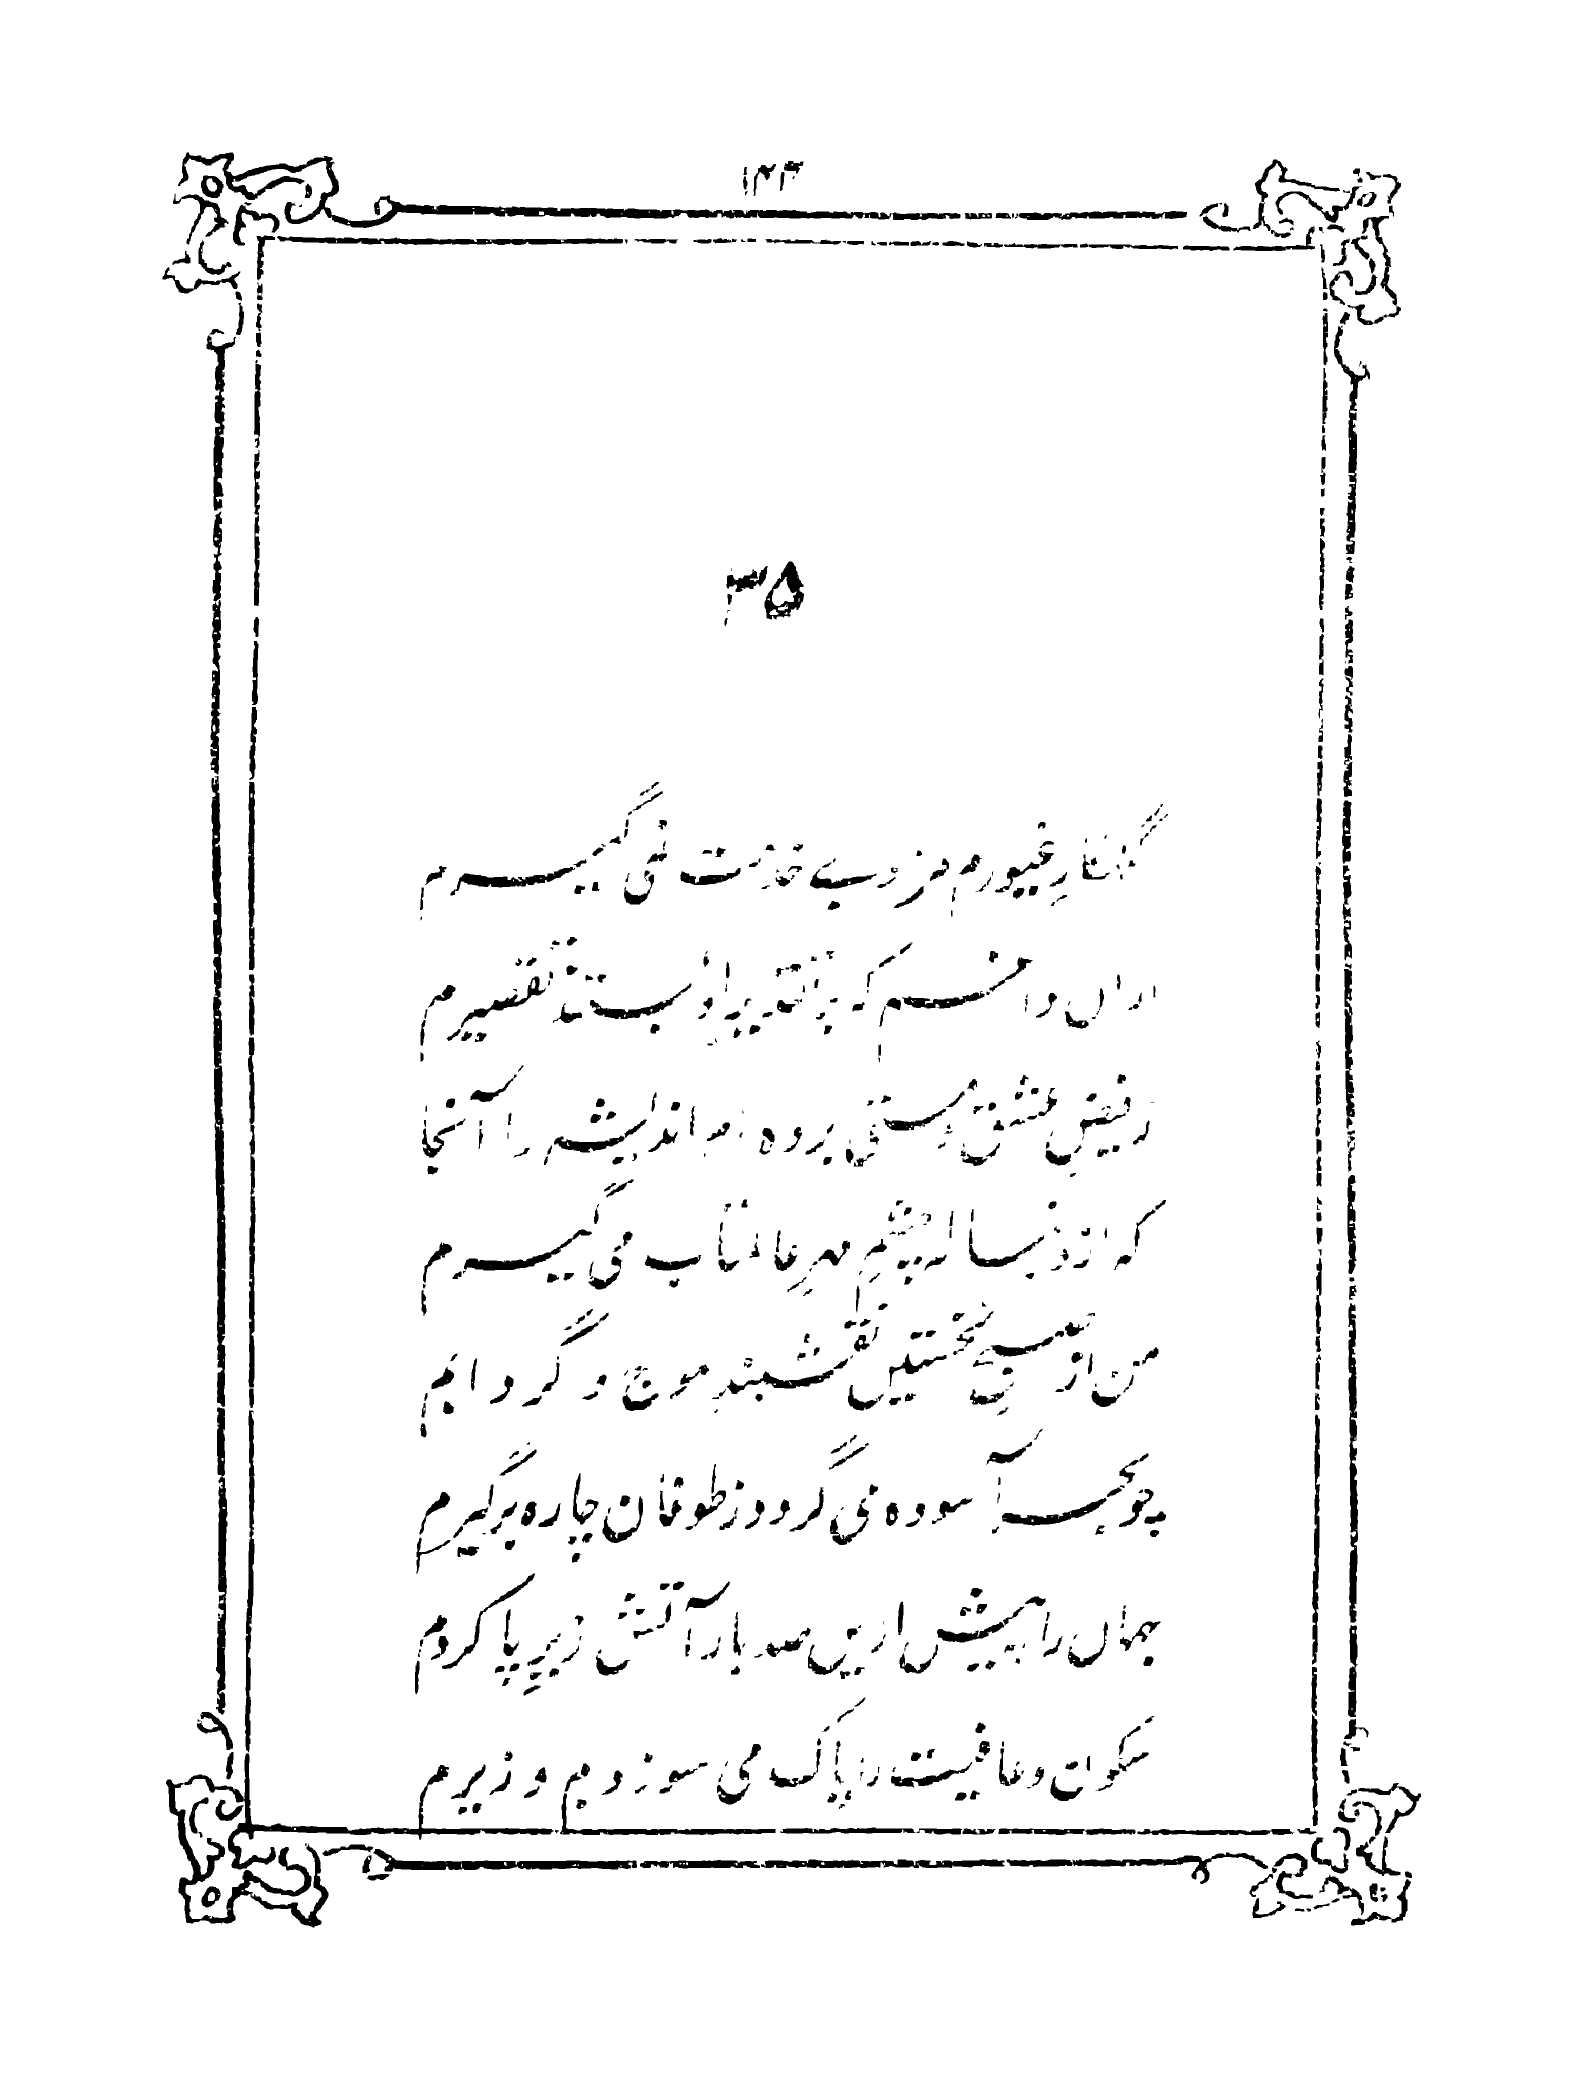 ۱۴۴
۳۵
گنہگارِ غیورم مزد بے خدمت نمی گیرم
ازاں داغم کہ بر تقدیرِ او بستند تقصیرم
ز فیضِ عشق و مستی بردہ ام اندیشہ را آنجا
کہ از دنبالۂ چشمِ مہرِ عالمتاب می گیرم
من از صبحِ نخستیں نقشبندِ موج و گردابم
چو بحر آسودہ می گردد ز طوفاں چارہ برگیرم
جہاں را پیش ازیں صد بار آتش زیرِ پا کردم
سکون و عافیت را پاک می سوزد بم و زیرم